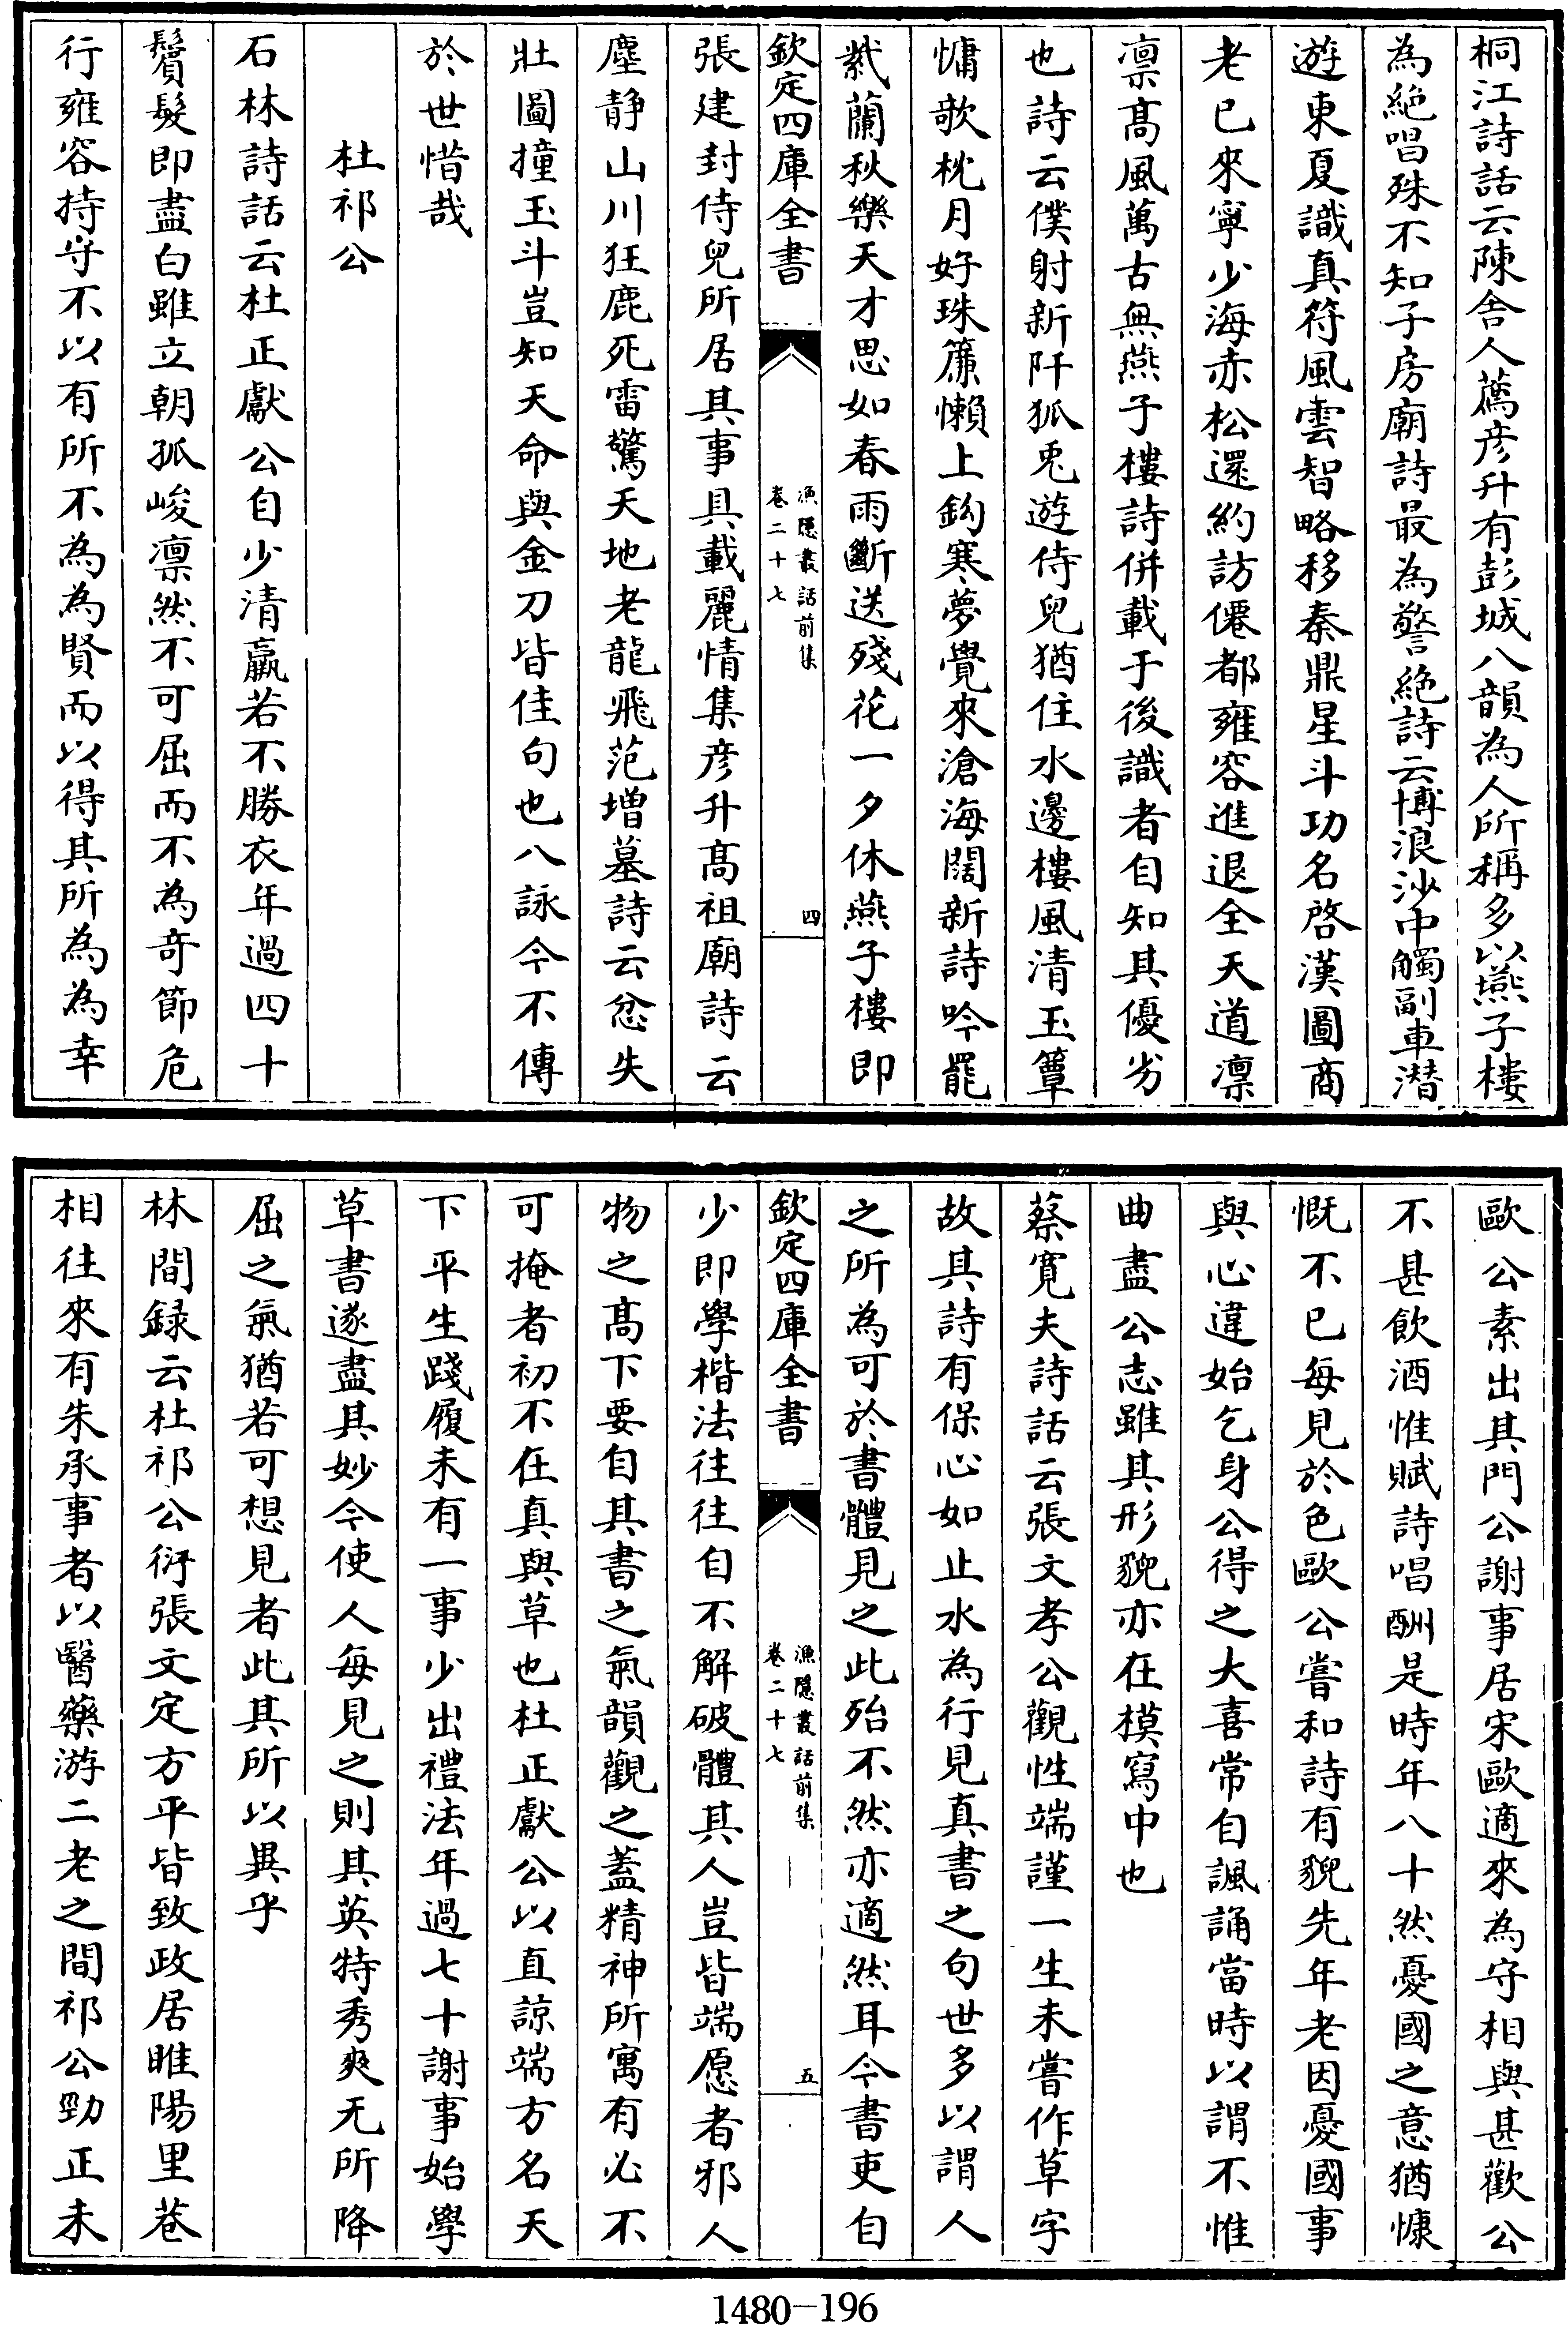 桐江詩話云陳舍人薦彦升有彭城八韻為人所稱多以燕子樓
為絶唱殊不知子房廟詩最為警絶詩云博浪沙中觸副車潜
遊東夏識真符風雲智略移秦鼎星斗功名啓漢圖商
老已來寧少海赤松還約訪僊都雍容進退全天道凛
凛髙風萬古無燕子樓詩併載于後識者自知其優劣
也詩云僕射新阡狐兎遊侍兒猶住水邊樓風清玉簟
慵歌枕月好珠簾懶上鈎寒夢覺來滄海闊新詩吟罷
紫蘭秋樂天才思如春雨斷送殘花一夕休燕子樓即
欽定四庫全書
漁隱叢話前集
卷二十七
四
張建封侍兒所居其事具載麗情集彦升髙祖廟詩云
塵静山川狂鹿死雷驚天地老龍飛范増墓詩云忿失
壯圖撞玉斗豈知天命與金刀皆佳句也八詠今不傳
於世惜哉
杜祁公
石林詩話云杜正獻公自少清羸若不勝衣年過四十
鬢髮即盡白雖立朝孤峻凛然不可屈而不為奇節危
行雍容持守不以有所不為為賢而以得其所為為幸
歐公素出其門公謝事居宋歐適來為守相與甚歡公
不甚飲酒惟賦詩唱酬是時年八十然憂國之意猶慷
慨不已每見於色歐公嘗和詩有貌先年老因憂國事
與心違始乞身公得之大喜常自諷誦當時以謂不惟
曲盡公志雖其形貌亦在模寫中也
蔡寛夫詩話云張文孝公觀性端謹一生未嘗作草字
故其詩有保心如止水為行見真書之句世多以謂人
之所為可於書體見之此殆不然亦適然耳今書吏自
欽定四庫全書
漁隱叢話前集
卷二十七
五
少即學楷法往往自不解破體其人豈皆端愿者邪人
物之髙下要自其書之氣韻觀之蓋精神所寓有必不
可掩者初不在真與草也杜正獻公以直諒端方名天
下平生踐履未有一事少出禮法年過七十謝事始學
草書遂盡其妙今使人每見之則其英特秀爽无所降
屈之氣猶若可想見者此其所以異乎
林間録云杜祁公衍張文定方平皆致政居睢陽里巷
相往來有朱承事者以醫藥游二老之間祁公勁正未
1480-196